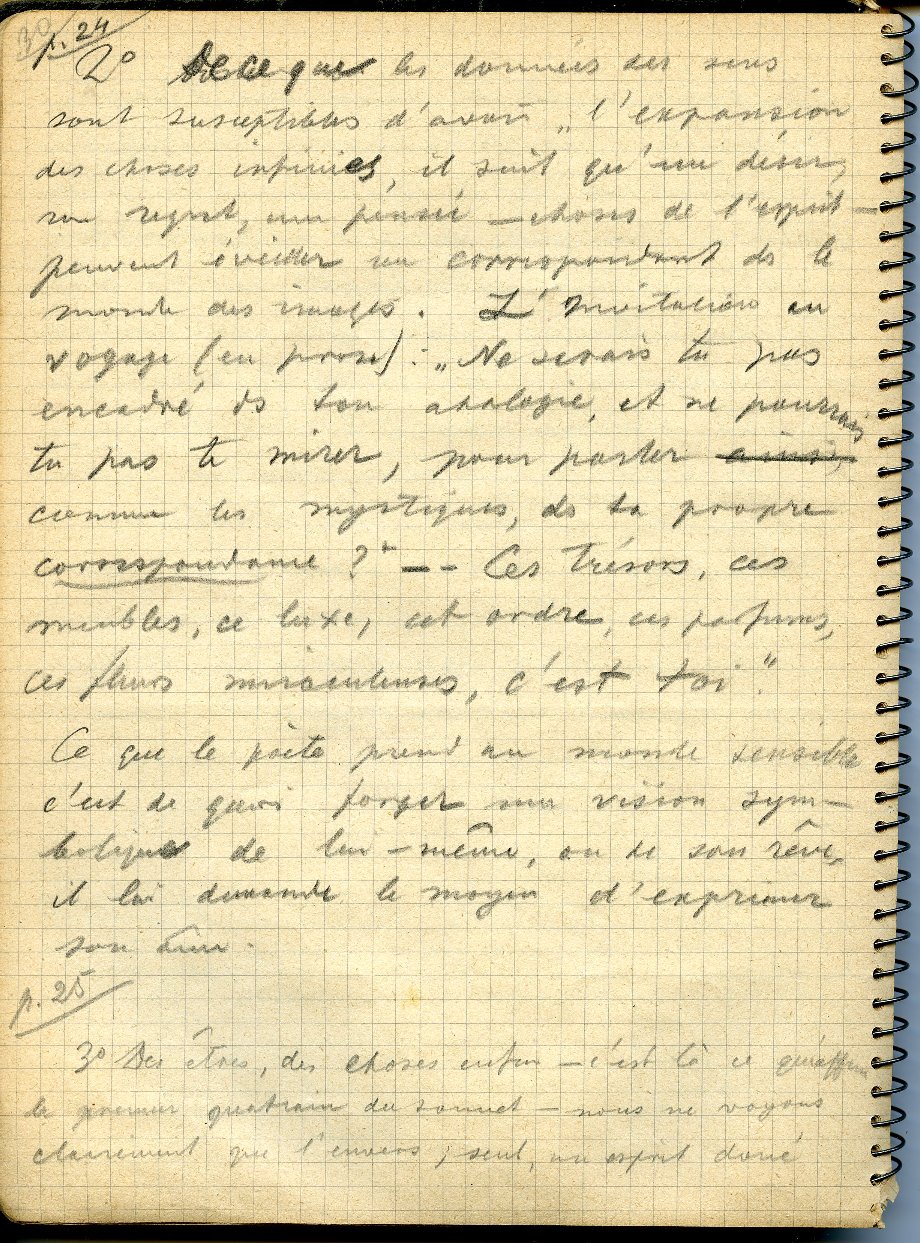 p. 24
2° De ce que les données des sens
sont susceptibles d'avoir „l'expansion
des choses infinies, il suit qu'un désir,
un regret, une pensée – choses de l'esprit –
peuvent éveiller un correspondant ds le
monde des images. L'Invitation au
voyage (en prose) : „Ne serais tu pas
encadré ds ton analogie, et ne pourrais
tu pas te mirer, pour parler ainsi,
comme les mystiques, ds ta propre
correspondance ?" -- Ces trésors, ces
meubles, ce luxe, cet ordre, ces parfums,
ces fleurs miraculeuses, c'est toi".
Ce que le poète prend au monde sensible
c'est de quoi forger une vision sym-
bolique de lui-même, ou de son rêve,
il lui demande le moyen d'exprimer
son âme.
p. 25
3° Des êtres, des choses enfin – c'est là ce qu'affirme
le premier quatrain du sonnet – nous ne voyons
clairement que l'envers ; seul, un esprit doué